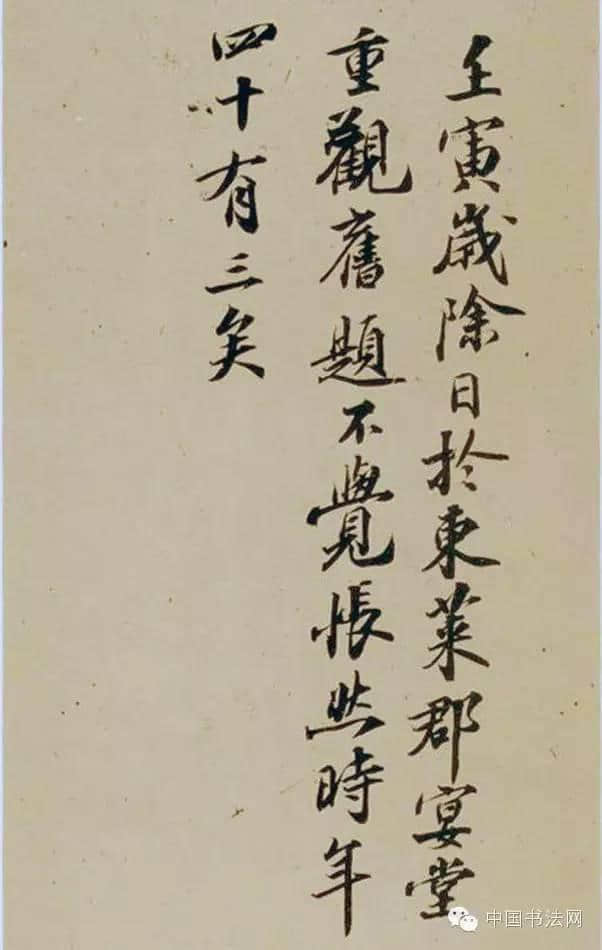 壬寅歲除日於東萊郡宴堂
重觀舊題不覺悵然時年
四十有三矣
中国书法网